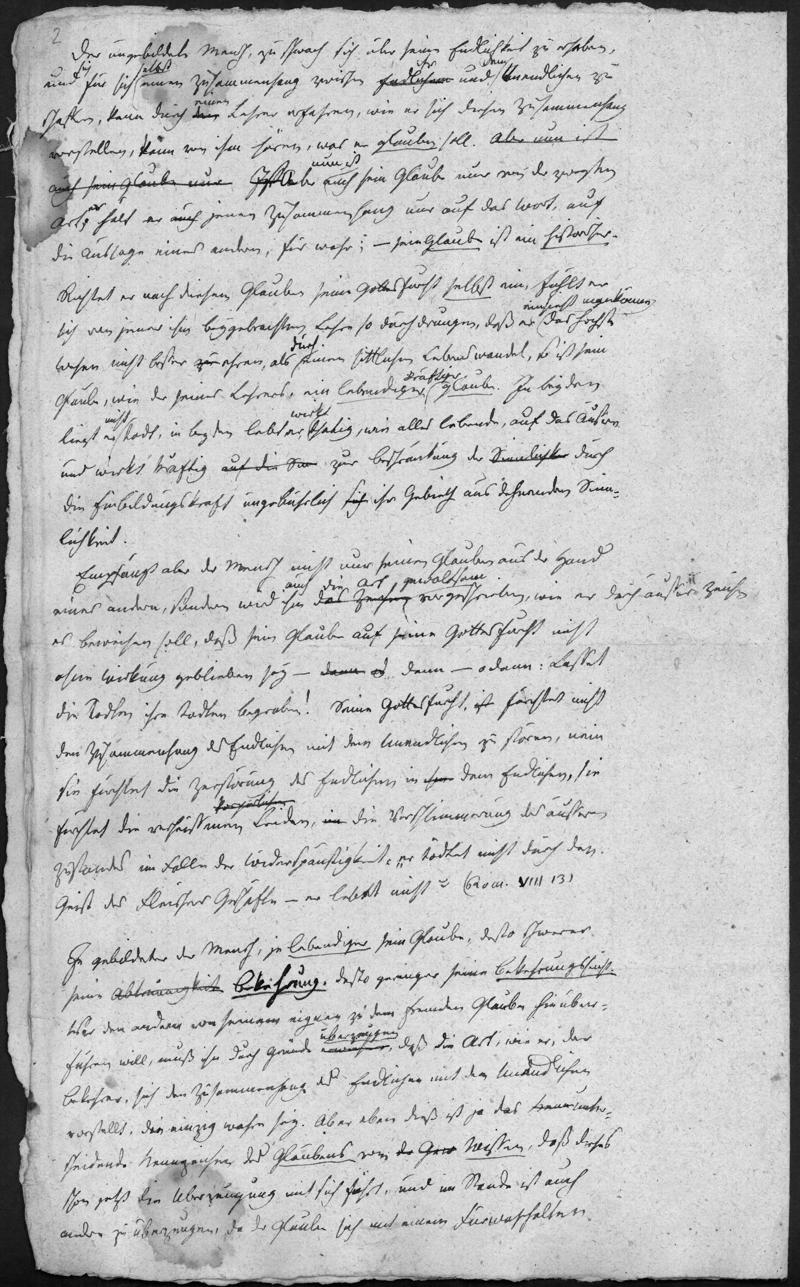 2
Der ungebildete Mensch, zu schwach sich über seine Endlichkeit zu erheben,
und sich für sich selbst einen Zusammenhang zwischen ihr Endlichen und dem Unendlichen zu
schaffen, kann durch einen Lehrer erfahren, wie er sich diesen Zusammenhang
vorstellen, kann von ihm hören, was er glauben soll. Aber nun ist
auch sein Glaube nur Aber nun ist auch sein Glaube nur von der zweyten
Art, er hält er auch jenen Zusammenhang nur auf das Wort, auf
die Aussage eines andern, für wahr; — sein Glaube ist ein historischer.
Richtet er nach diesem Glauben seine Gottesfurcht selbst ein, fühlt er
sich von jener ihm beygebrachten Lehre so durchdrungen, daß er einsieht man könne das höchste
Wesen nicht besser zu ehren, als durch einen sittlichen Lebenswandel, so ist sein
Glaube, wie der seines Lehrers, ein lebendiger, kräftiger Glaube. In beyden
liegt er nicht todt, in beyden lebt er, wirkt thätig, wie alles lebende, auf das Äußere
und wirkt kräftig auf die Sin zur Beschränkung der Sinnlichk durch
die Einbildungskraft ungebührlich sich ihr Gebieth ausdehnenden Sinn-
lichkeit.
Empfängt aber der Mensch nicht nur seinen Glauben aus der Hand
eines andern, sondern wird ihm auch die Art gewaltsam das Zeichen vorgeschrieben, wie er durch äußere Zeichen
es beweisen soll, daß sein Glaube auf seine Gottesfurcht nicht
ohne Wirkung geblieben sey — dann ist denn — o dann: Lasset
die Todten ihre Todten begraben! Seine Gottesfurcht, ist fürchtet nicht
den Zusammenhang des Endlichen mit dem Unendlichen zu stören, nein
sie fürchtet die Zerstörung des Endlichen in dem Endlichen, sie
fürchtet die verheissenen körperlichen Leiden, in die Verschlimmerung des äussern
Zustandes im Falle der Widerspänstigkeit, „er tödtet nicht durch den
Geist des Fleisches Geschäfte — er lebt nicht“ (Rom. VIII 13)
Je gebildeter der Mensch, je lebendiger sein Glaube, desto schwerer
seine Abtrünnigkeit Bekehrung, desto geringer seine Bekehrungssucht.
Wer den andern von seinem eignen zu dem fremden Glauben hinüber-
führen will, muß ihn durch Gründe überzeugen, daß die Art, wie er, der
Bekehrer, sich den Zusammenhang des Endlichen mit dem Unendlichen
vorstellt, die einzig wahre sey. Aber eben dieß ist ja das unter-
scheidende Kennzeichen des Glaubens von Wissen, daß dieses
schon jetzt die Überzeugung mit sich führt, und im Stande ist auch
andre zu überzeugen, da der Glaube sich mit einem Fürwahrhalten